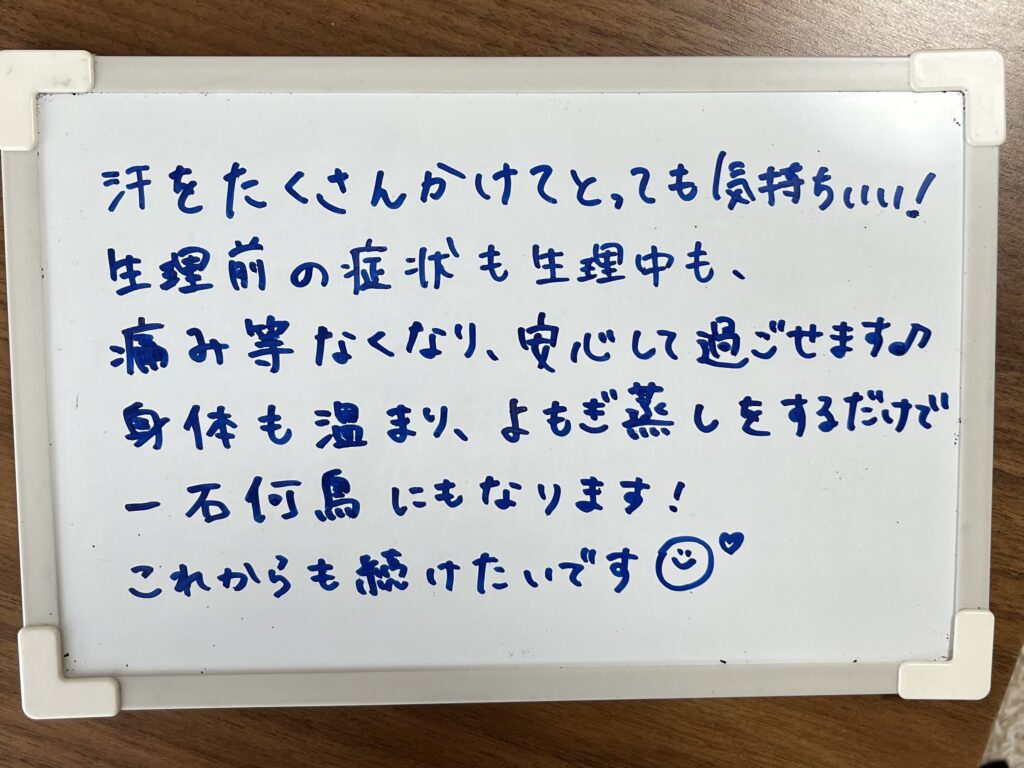 汗をたくさんかけてとっても気持ちいい!
生理前の症状も生理中も、
痛み等なくなり、安心して過ごせます♪
身体も温まり、よもぎ蒸しをするだけで
一石何鳥にもなります!
これからも続けたいです